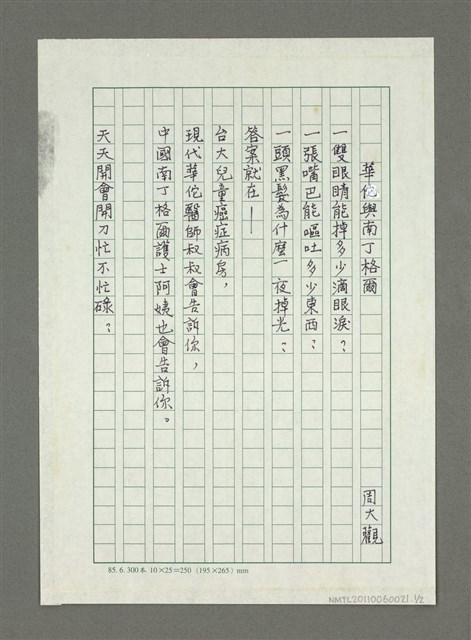 華佗與南丁格爾
周大觀
一雙眼睛能掉多少滴眼淚?
一張嘴巴能嘔吐多少東西?
一頭黑髮為什麼一夜掉光?
答案就在——
台大兒童癌症病房,
現代華佗醫師叔叔會告訴你,
中國南丁格爾護士阿姨也會告訴你。
天天開會開刀忙不忙碌?
85. 6. 300本 10×25=250 (195×265) mm
NMTL20110060021-1/2